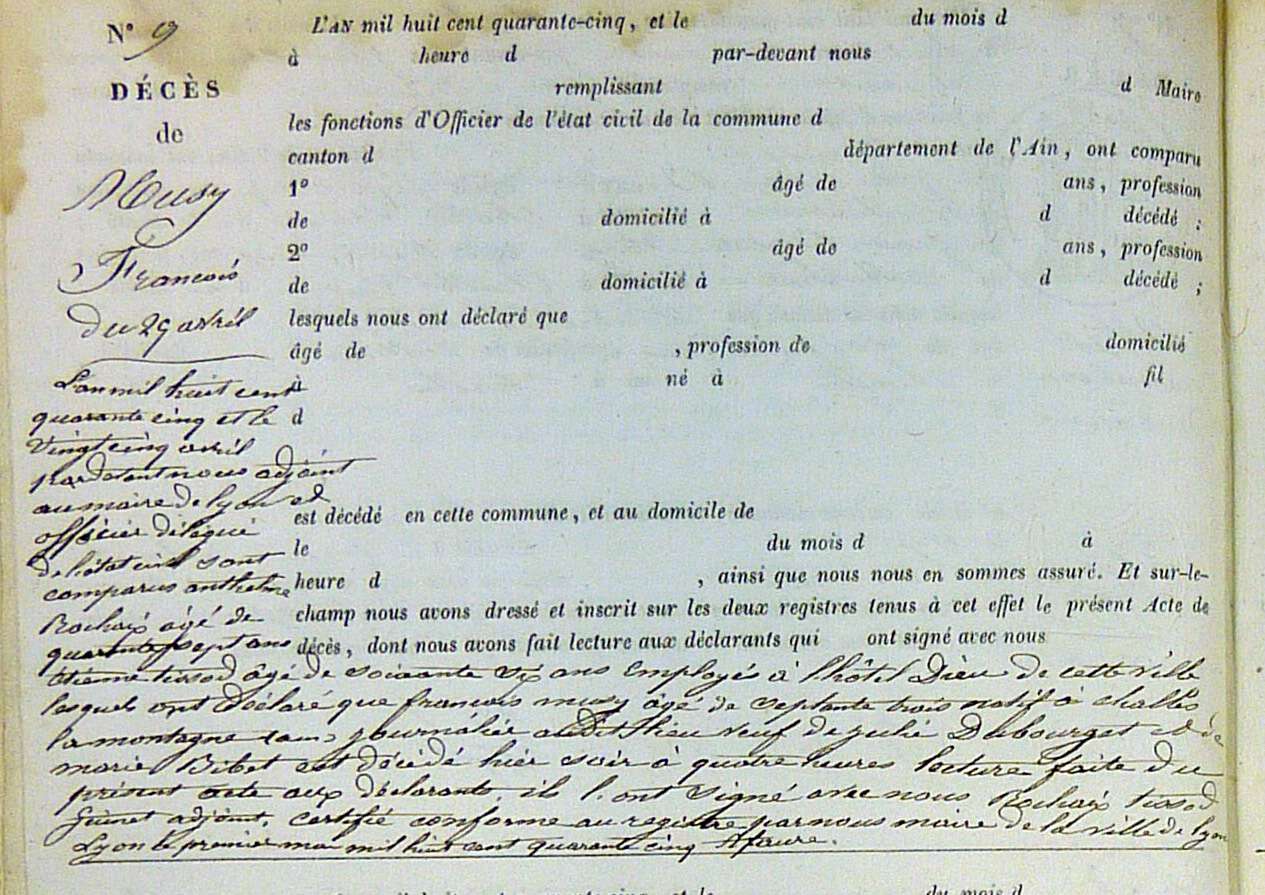 N° 9
DÉCÈS
de
Musy
François
du 29 avril
L'AN mil huit cent quarante-cinq, et le du mois d
à heure d par-devant nous
remplissant d Maire
les fonctions d'Officier de l'état civil de la commune d
canton d département de l'Ain, ont comparu
1° âgé de ans, profession
de domicilié à d décédé ;
2° âgé de ans, profession
de domicilié à d décédé ;
lesquels nous ont déclaré que
âgé de , profession de domicilié
à né à fil
d
est décédé en cette commune, et au domicile de
le du mois d à
heure d , ainsi que nous nous en sommes assuré. Et sur-le-
champ nous avons dressé et inscrit sur les deux registres tenus à cet effet le présent Acte de
décès, dont nous avons fait lecture aux déclarants qui ont signé avec nous
L'an mil huit cent
quarante cinq et le
vingt cinq avril
pardevant nous adjoint
au maire de lyon et
officier délégué
de l'état civil sont
comparus anthelme
Rochaix âgé de
quarante sept ans
étienne tissod âgé de soixante six ans Employés à l'hôtel Dieu de cette ville
lesquels ont déclaré que françois musy âgé de septante trois natif à challes
la montagne journalier audit lieu veuf de julie Dubourget et de
marie Bibet est décédé hier soir à quatre heures lecture faite du
présent acte aux déclarants ils l'ont signé avec nous Rochaix tissod
adjoint. certifié conforme au registre par nous maire de la ville de lyon
Lyon le premier mai mil huit cent quarante cinq
du mois d